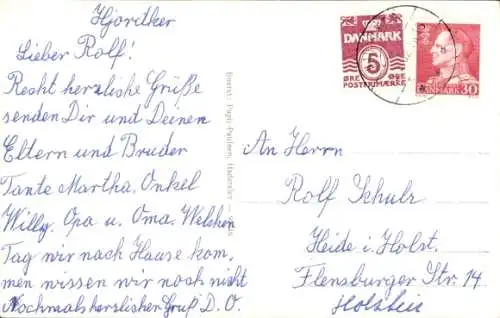 Hjordkær
Lieber Rolf!
Recht herzliche Grüße
senden Dir und Deinen
Eltern und Bruder
Tante Martha, Onkel
Willy, Opa u. Oma. Welchen
Tag wir nach Hause kom,
men wissen wir noch nicht
Nochmals herzlicher Gruß D. O.
Eneret: Papir-Paulsen, Haderslev
DANMARK
5
ØRE ØRE
POSTFRIMÆRKE
DANMARK 30
An Herrn
Rolf Schulz
Heide i. Holst.
Flensburger Str. 14
Holstein